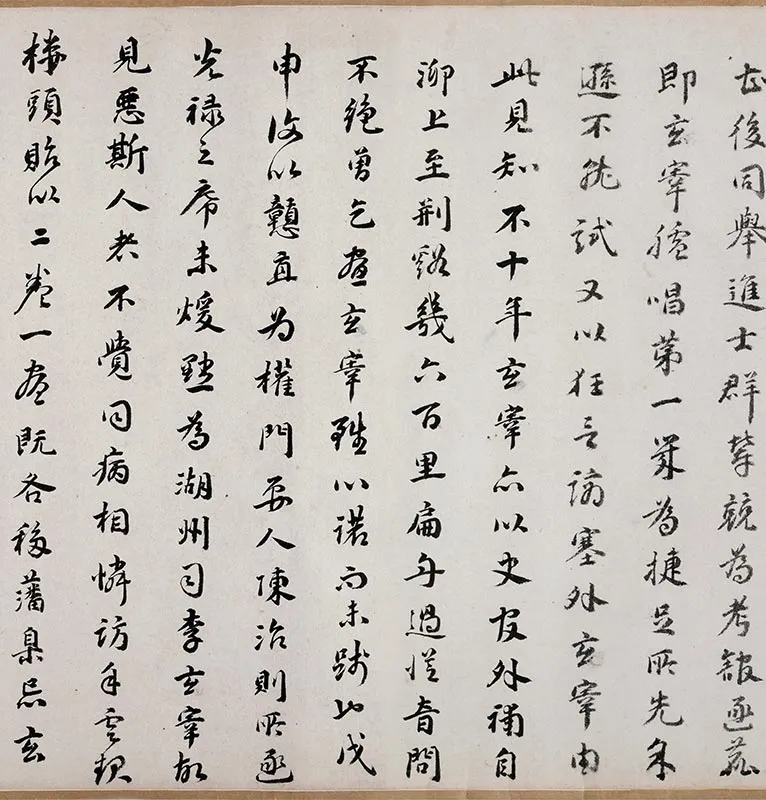 後同舉進士群輩競為考館逐
即玄宰臚唱第一業為捷足所先
遜不就試又以狂言謫塞外玄宰由
此見知不十年玄宰亦以史官外補自
泖上至荊谿幾六百里扁舟過從音問
不絕曾乞畫玄宰雖心諾而未踐比戊
申復以戇直為權門要人陳治則所逐
光祿之席未煖黜為湖州司李玄宰故
見惡斯人者不覺同病相憐訪余雲起
樓頭貽以二卷一畫既各移藩臬忌玄